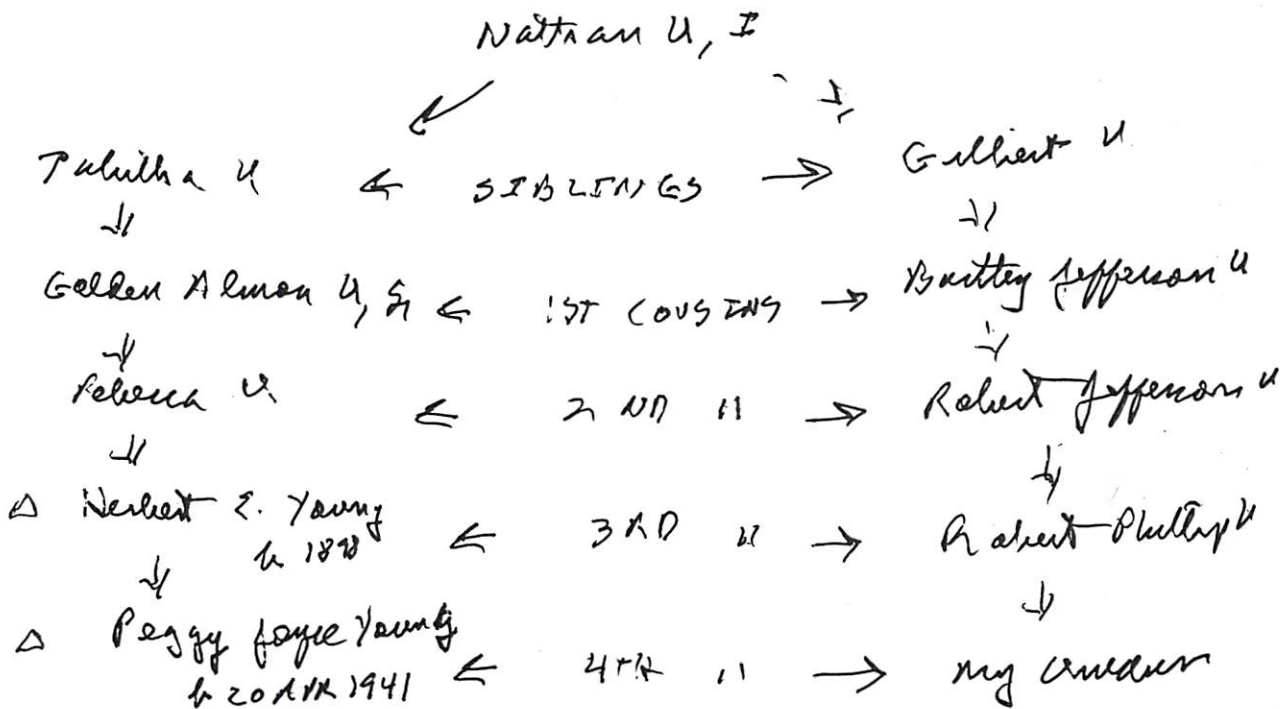 Nathan U, I
Tabitha U ← SIBLINGS → Gilbert U
Golden Almon U, Sr ← 1ST COUSINS → Battey Jefferson U
Rebecca U ← 2ND " → Robert Jefferson U
△ Herbert E. Young ← 3RD " → Robert Phillip U
b 1898
△ Peggy Joyce Young ← 4TH " → my
b 20 APR 1941